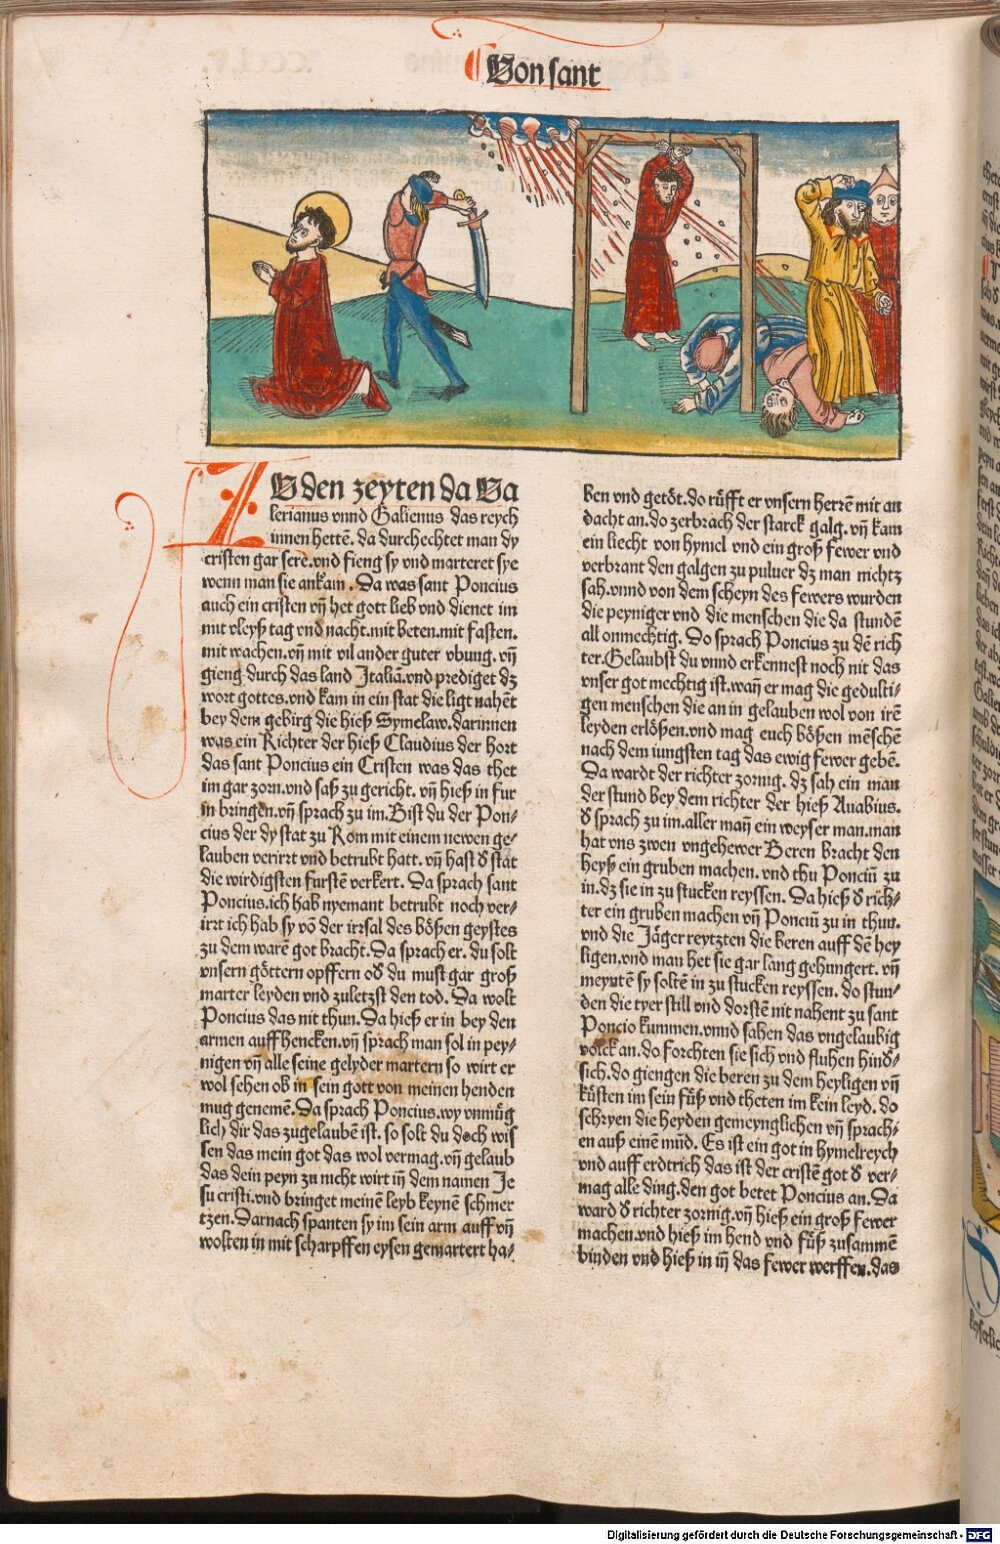 Von sant
ZV den zeyten da Va
lerianus vnnd Galienus das reych
innen hettē. da durchechtet man dy
cristen gar sere. vnd fieng sy vnd marteret sye
wenn man sie ankam. Da was sant Poncius
auch ein cristen vn̄ het gott lieb vnd dienet im
mit vleyß tag vnd nacht. mit beten. mit fasten.
mit wachen. vn̄ mit vil ander guter vbung. vn̄
gieng durch das land Italiā. vnd prediget dz
wort gottes. vnd kam in ein stat die ligt nahēt
bey dem gebirg die hieß Symelaw. darinnen
was ein Richter der hieß Claudius der hort
das sant Poncius ein Cristen was das thet
im gar zorn. vnd saß zu gericht. vn̄ hieß in fur
in bringen. vn̄ sprach zu im. Bist du der Pon⸗
cius der dy stat zu Rom mit einem newen ge⸗
lauben verirrt vnd betrubt hatt. vn̄ hast d̕ stat
die wirdigsten furstē verkert. Da sprach sant
Poncius. ich hab nyemant betrubt noch ver⸗
irrt ich hab sy vō der irrsal des bößen geystes
zu dem warē got bracht. Da sprach er. du solt
vnsern göttern opffern od̕ du must gar groß
marter leyden vnd zuletzst den tod. Da wolt
Poncius das nit thun. Da hieß er in bey den
armen auff hencken. vn̄ sprach man sol in pey⸗
nigen vn̄ alle seine gelyder martern so wirt er
wol sehen ob in sein gott von meinen henden
mug genemē. Da sprach Poncius. wy vnmüg
lich dir das zugelaubē ist. so solt du doch wis
sen das mein got das wol vermag. vn̄ gelaub
das dein peyn zu nicht wirt in̄ dem namen Je
su cristi. vnd bringet meinē leyb keynē schmer
tzen. Darnach spanten sy im sein arm auff vn̄
wolten in mit scharpffen eysen gemartert ha⸗
ben vnd getöt. do rüfft er vnsern herrē mit an
dacht an. do zerbrach der starck galg. vn̄ kam
ein liecht von hymel vnd ein groß fewer vnd
verbrant den galgen zu puluer dz man nichtz
sah. vnnd von dem scheyn des fewers wurden
die peyniger vnd die menschen die da stundē
all onmechtig. Do sprach Poncius zu dē rich
ter. Gelaubst du vnnd erkennest noch nit das
vnser got mechtig ist. wan̄ er mag die gedulti⸗
gen menschen die an in gelauben wol von irē
leyden erlößen. vnd mag euch bößen mēschē
nach dem iungsten tag das ewig fewer gebē.
Da wardt der richter zornig. dz sah ein man
der stund bey dem richter der hieß Auabius.
d̕ sprach zu im. aller man̄ ein weyser man. man
hat vns zwen vngehewer Beren bracht den
heyß ein gruben machen. vnd thu Ponciū zu
in. dz sie in zu stucken reyssen. Da hieß d̕ rich⸗
ter ein gruben machen vn̄ Ponciū zu in thun.
vnd die Jäger reytzten die beren auff dē hey
ligen. vnd man het sie gar lang gehungert. vn̄
meyntē sy soltē in zu stucken reyssen. do stun⸗
den die tyer still vnd dorstē nit nahent zu sant
Poncio kummen. vnnd sahen das vngelaubig
volck an. do forchten sie sich vnd fluhen hind̕⸗
sich. do giengen die beren zu dem heyligen vn̄
küsten im sein füß vnd theten im kein leyd. do
schryen die heyden gemeynglichen vn̄ sprach⸗
en auß einē mūd. Es ist ein got in hymelreych
vnd auff erdtrich das ist der cristē got d̕ ver⸗
mag alle ding. den got betet Poncius an. Da
ward d̕ richter zornig. vn̄ hieß ein groß fewer
machen. vnd hieß im hend vnd füß zusammē
binden vnd hieß in in̄ das fewer werffen. das
Digitalisierung gefördert durch die Deutsche Forschungsgemeinschaft - DFG